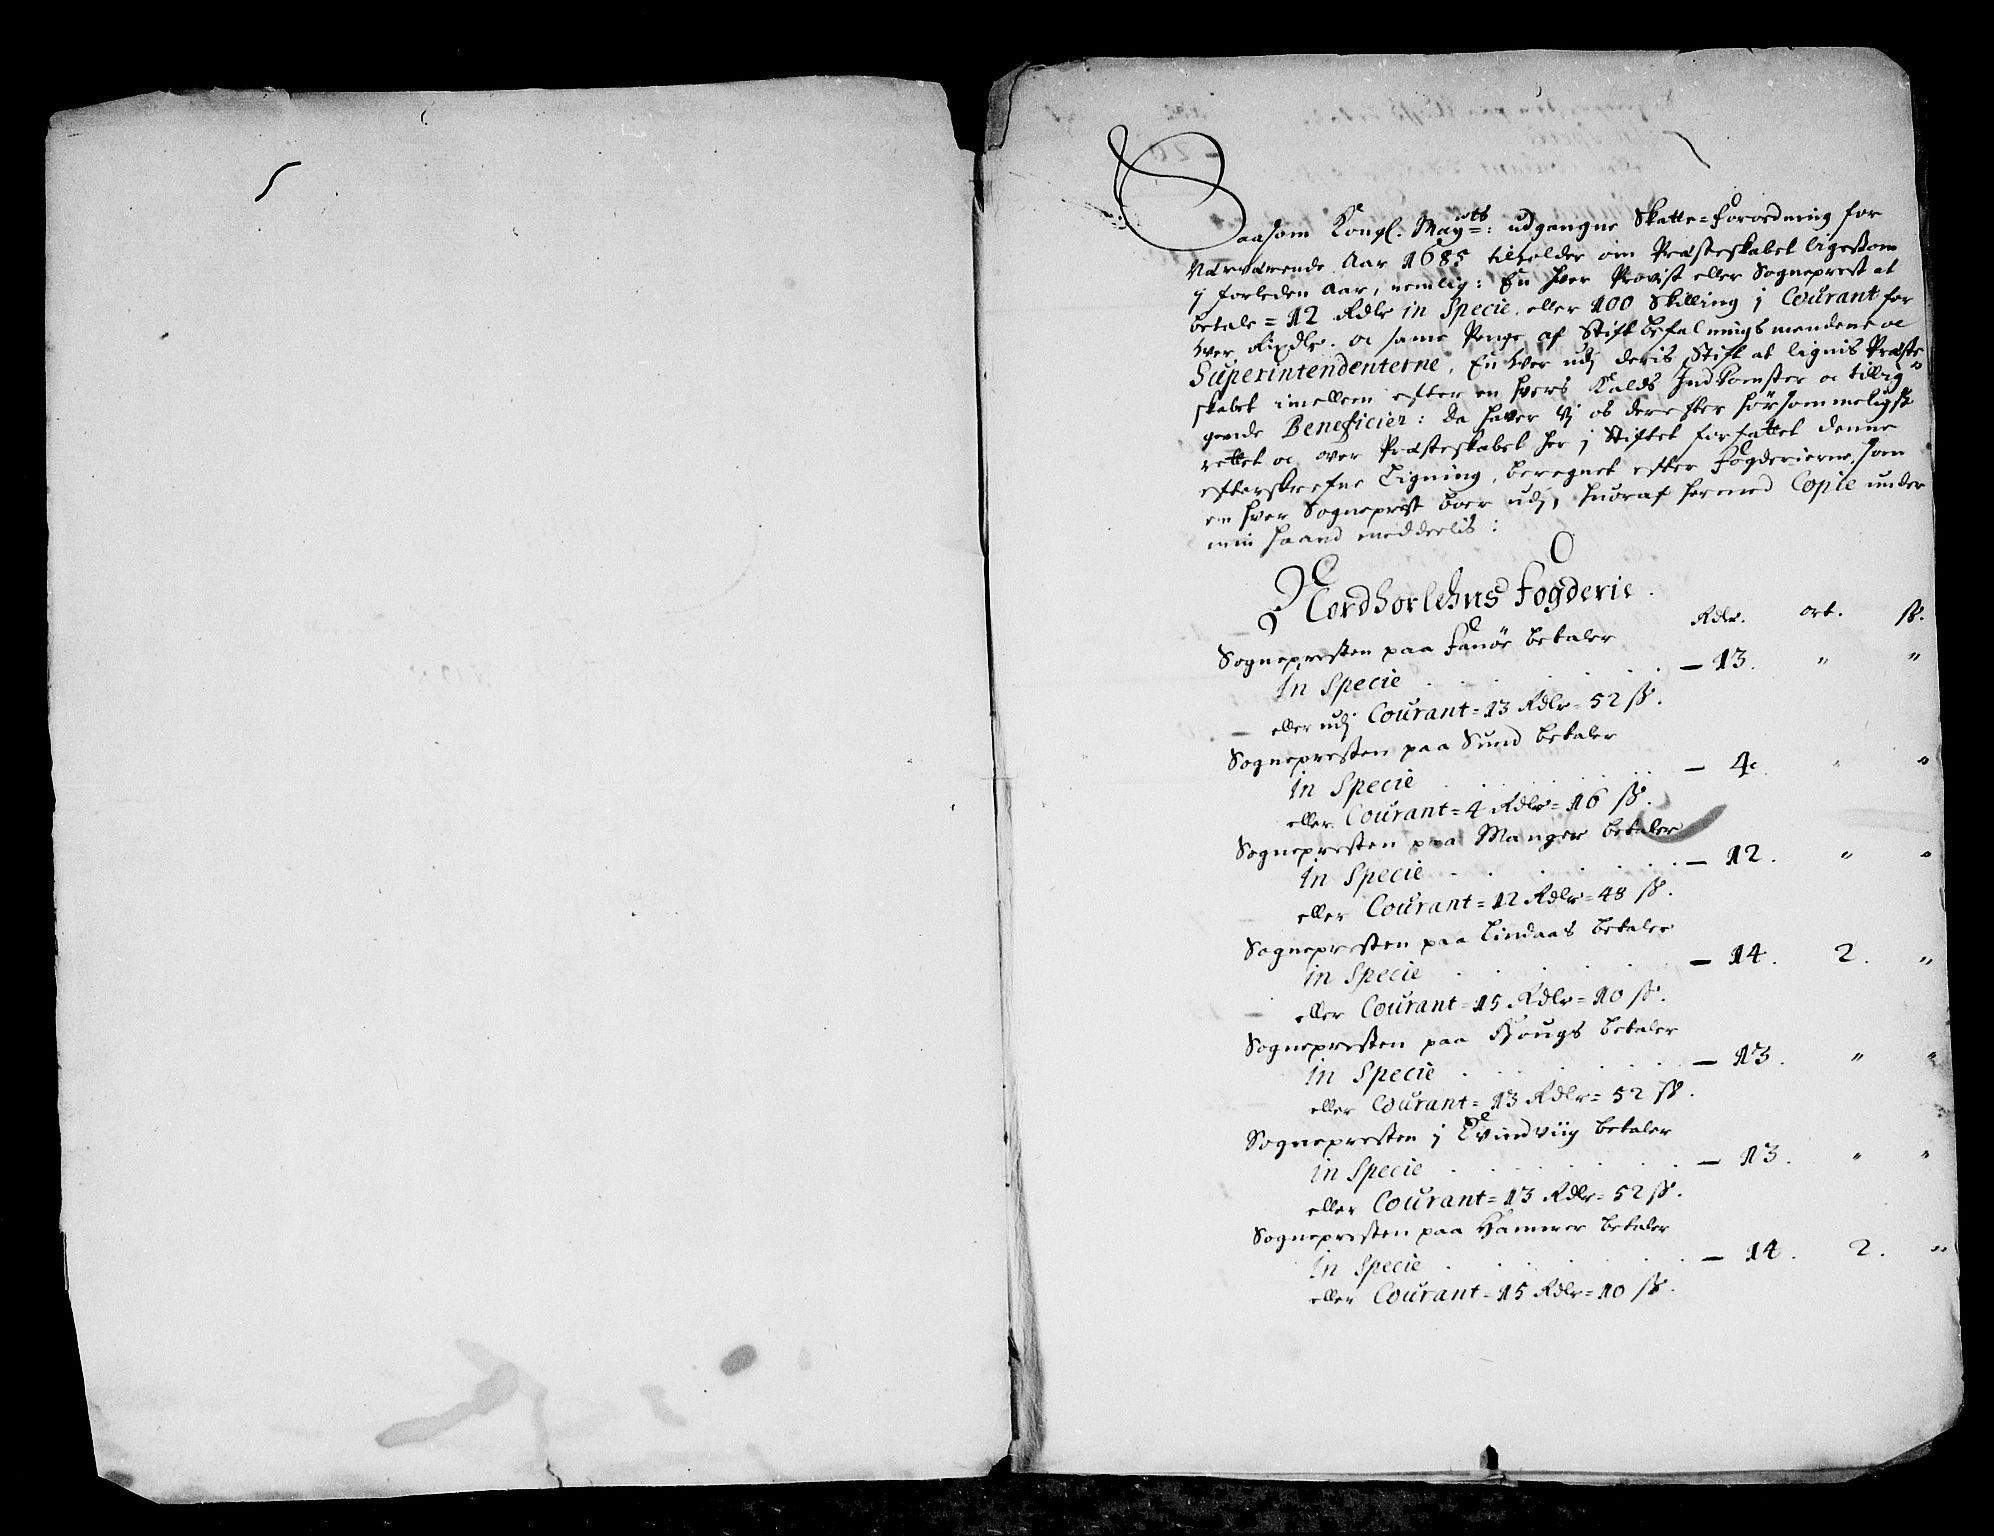 Saasom Kongl. Mayts: udgangne Skatte=Forordning for
Nærværende Aar 1685 tilholder om Præsteskabet ligesom
j forleden Aar, nemlig: En hver Provist eller Sogneprest at
betale = 12 Rdlr in Specie, eller 100 Skilling j Courant for
hver Rixdlr. oc same Penge af Stiftbefalningsmendene oc
Superintendenterne, En hver udj deris Stift at lignis Præste
skabet imellem efter en hvers Kalds Indkomster oc tillig=
gende Beneficier: Da haver Vj os derefter hørsommeligst
rettet oc over Præsteskabet her j Stiftet forfattet denne
efterskrefne Ligning, beregnet efter Fogderierne, som
en hver Sogneprest boer udj, huoraf hermed Copie under
min haand meddeelis:
Nordhorlehns Fogderie.
Rdlr. ort. sk.
Sognepresten paa Fanøe betaler
In Specie . . . . . . — 13. " "
eller udj Courant = 13 Rdlr = 52 sk.
Sognepresten paa Sund betaler
in Specie . . . . . . — 4. " "
eller Courant = 4 Rdlr = 16 sk.
Sognepresten paa Manger betaler
in Specie . . . . . . — 12. " "
eller Courant = 12 Rdlr = 48 sk.
Sognepresten paa Lindaas betaler
in Specie . . . . . . — 14. 2. "
eller Courant = 15 Rdlr = 10 sk.
Sognepresten paa Hougs betaler
in Specie . . . . . . — 13. " "
eller Courant = 13 Rdlr = 52 sk.
Sognepresten j Evindviig betaler
in Specie . . . . . . — 13. " "
eller Courant = 13 Rdlr = 52 sk.
Sognepresten paa Hammer betaler
In Specie . . . . . . — 14. 2. "
eller Courant = 15 Rdlr = 10 sk.